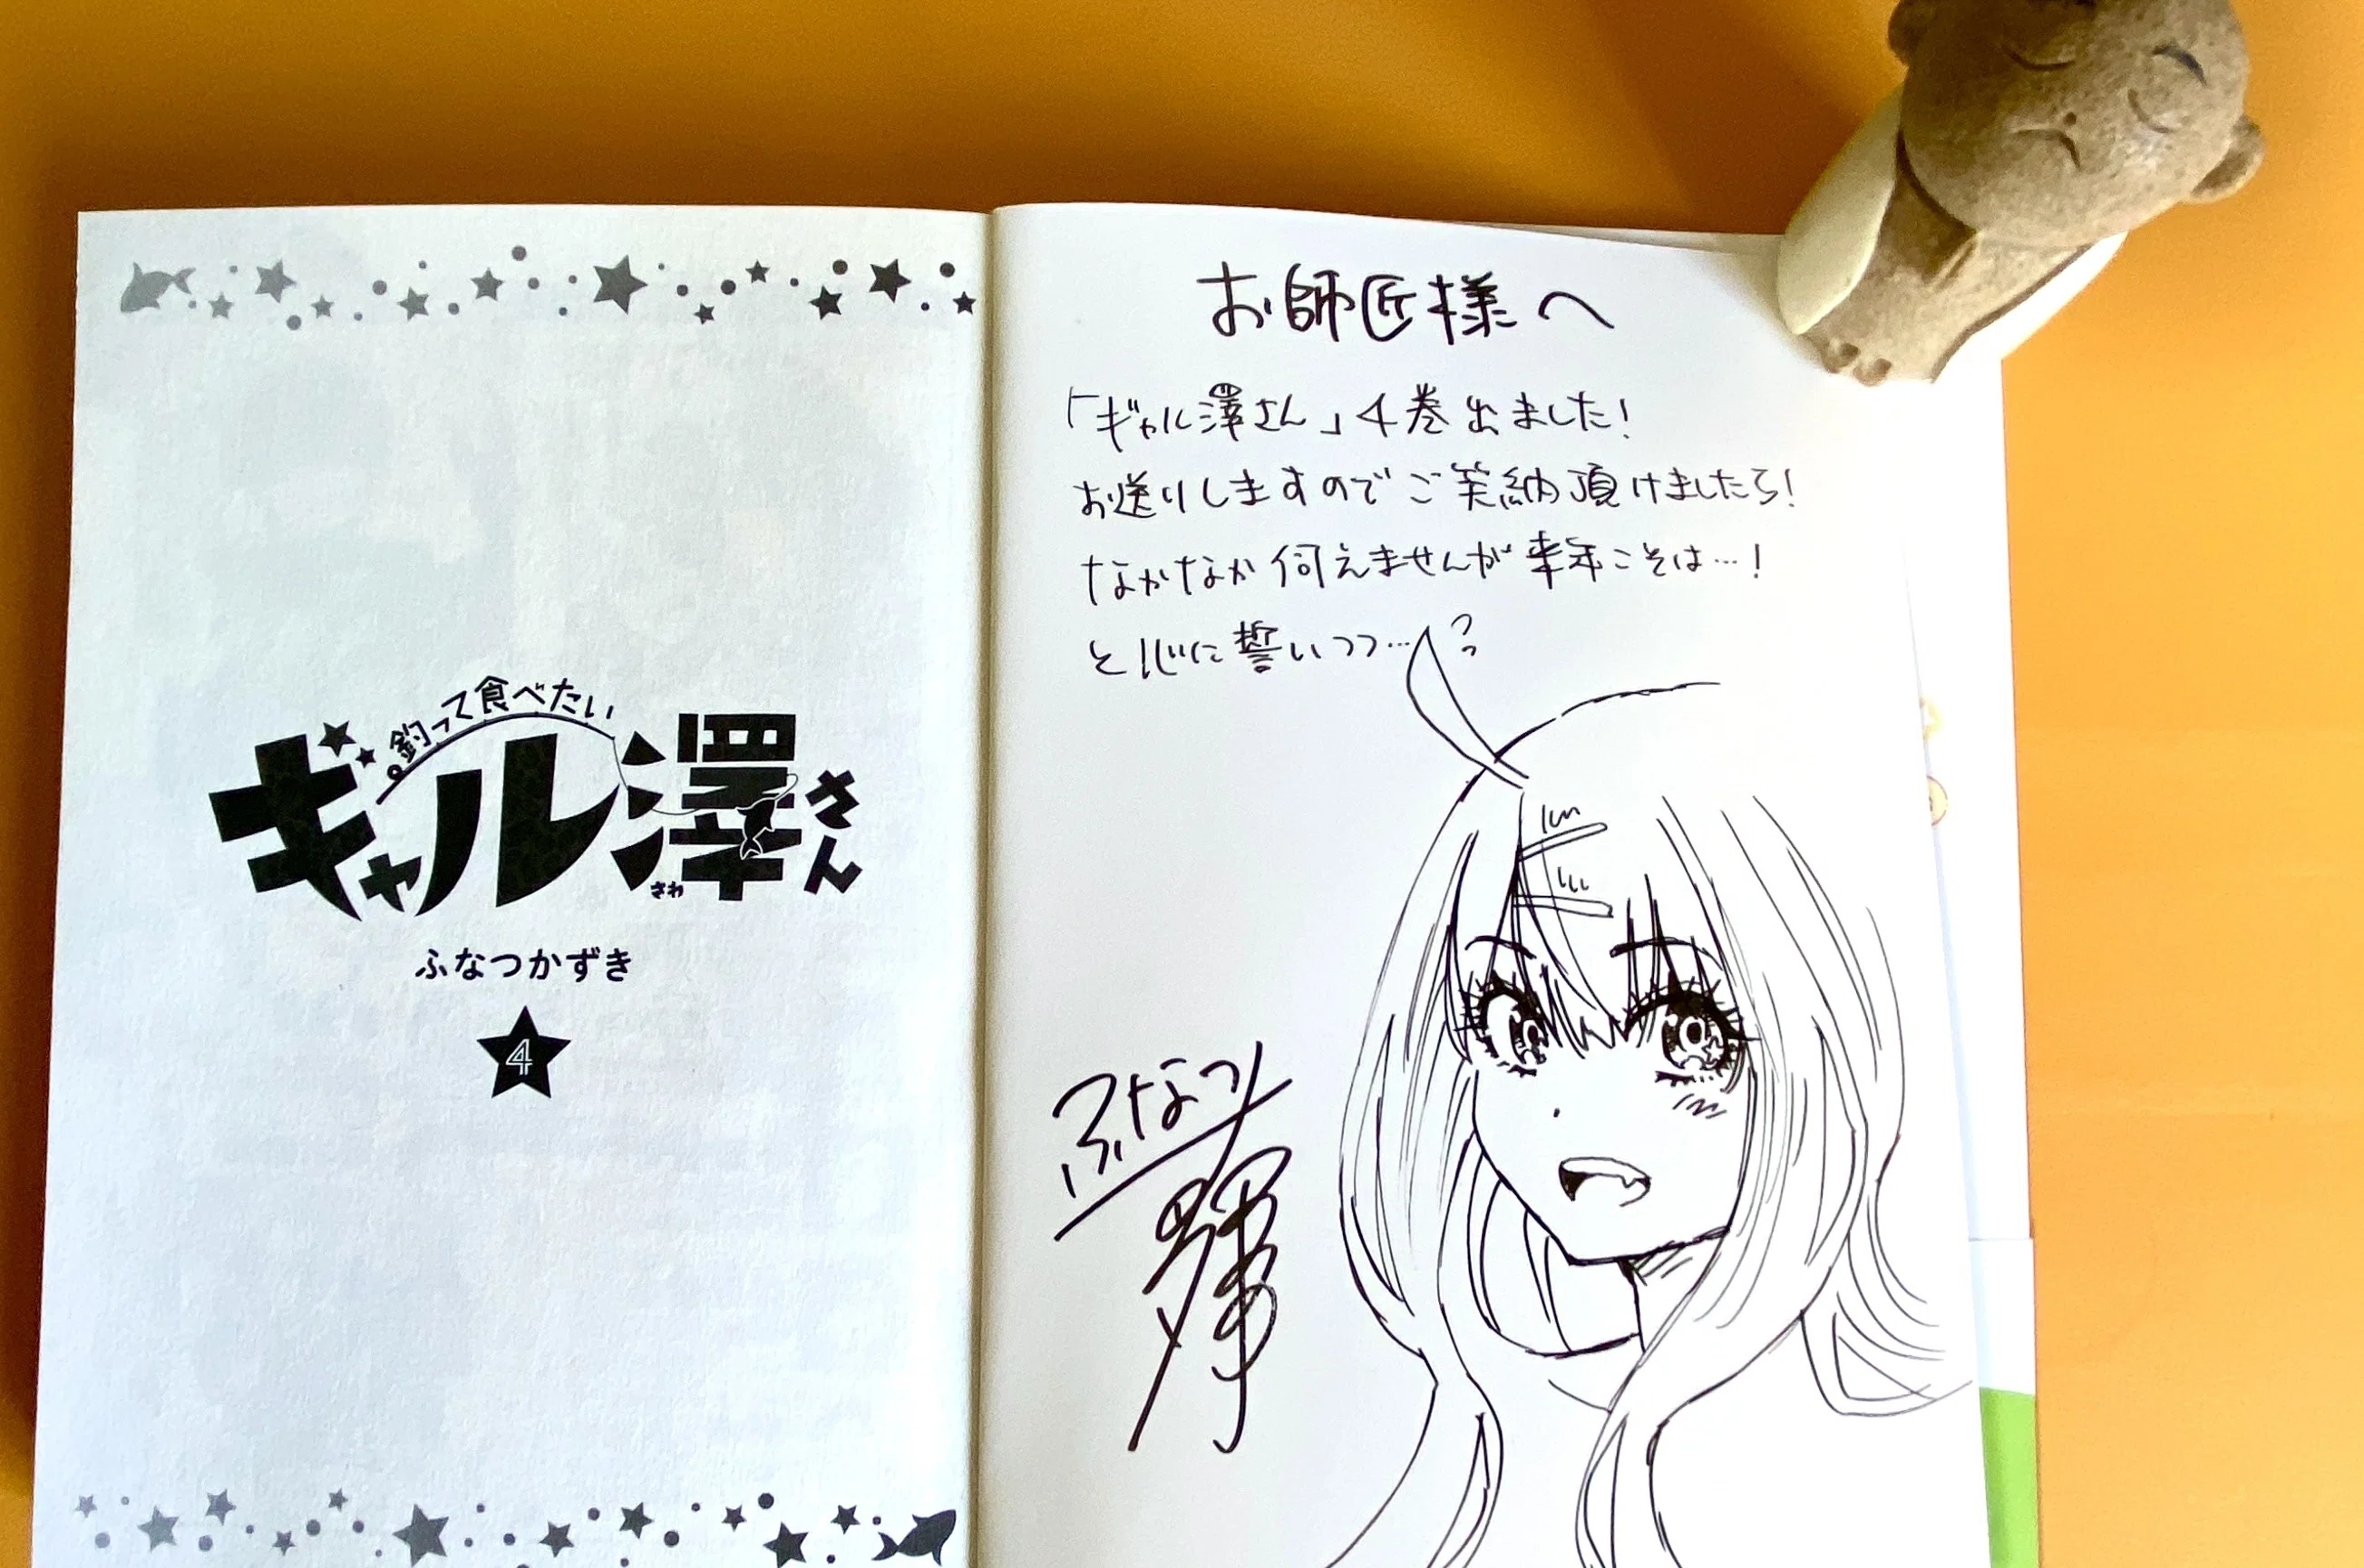 釣って食べたい
ギャル澤さん
さわ
ふなつかずき
4
お師匠様へ
「ギャル澤さん」4巻出ました!
お送りしますのでご笑納頂けましたら!
なかなか伺えませんが来年こそは…!
と心に誓いつつ…
?
ふなつ